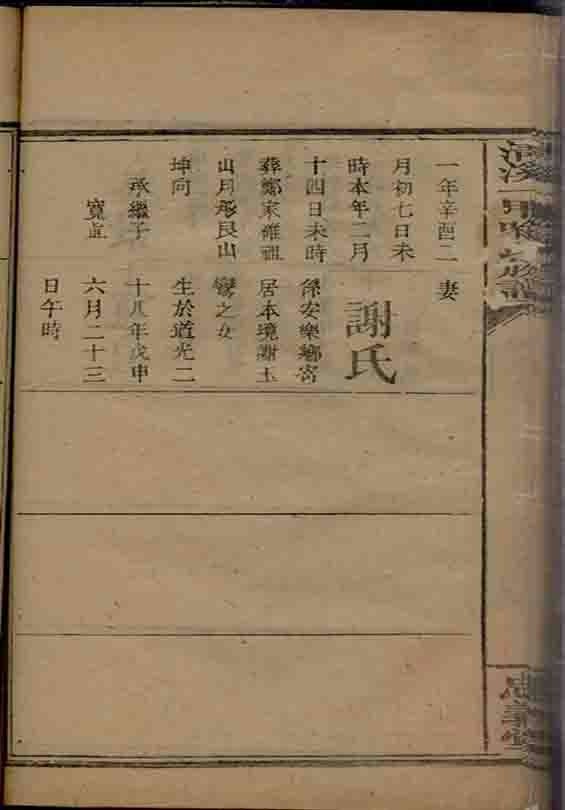 族譜
忠義堂
一年辛酉二
月初七日未
時本年二月
十四日未時
葬鄭家 祖
山月形艮山
坤向
承繼子
寬
妻
謝氏
係安樂鄉寄
居本境謝玉
鸞之女
生於道光二
十八年戊申
六月二十三
日午時